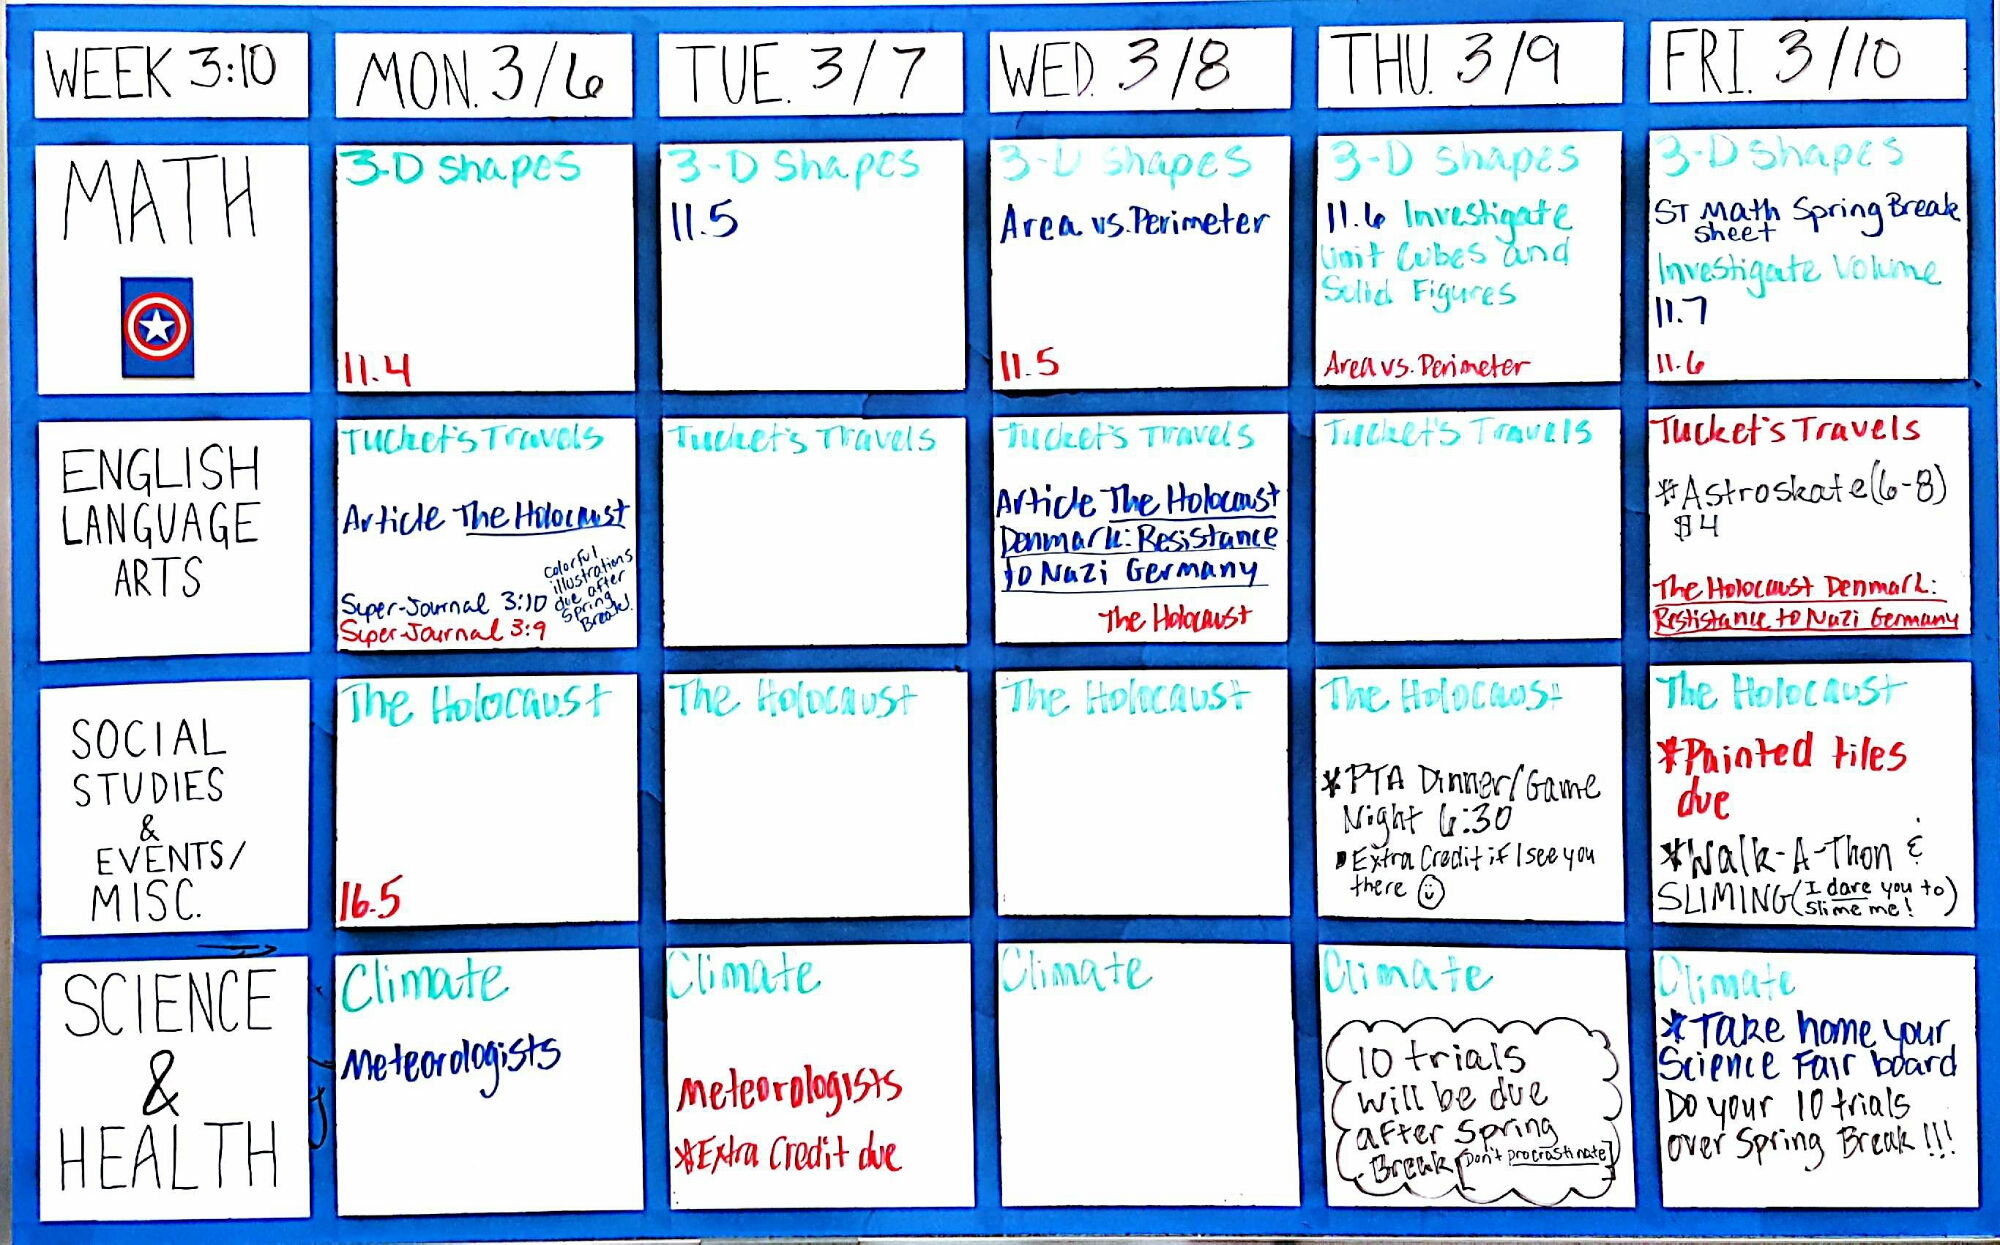 WEEK 3:10
MON. 3/6
TUE. 3/7
WED. 3/8
THU. 3/9
FRI. 3/10
MATH
3-D shapes
11.4
3-D shapes
11.5
3-D shapes
Area vs. Perimeter
11.5
3-D shapes
11.6 Investigate
Unit Cubes and
Solid Figures
Area vs. Perimeter
3-D shapes
ST Math Spring Break
sheet
Investigate Volume
11.7
11.6
ENGLISH
LANGUAGE
ARTS
Tucket's Travels
Article The Holocaust
colorful
illustrations
due after
Spring
Break!
Super-Journal 3:10
Super-Journal 3:9
Tucket's Travels
Tucket's Travels
Article The Holocaust
Denmark: Resistance
to Nazi Germany
The Holocaust
Tucket's Travels
Tucket's Travels
*Astroskate (6-8)
$4
The Holocaust Denmark:
Restistance to Nazi Germany
SOCIAL
STUDIES
&
EVENTS/
MISC.
The Holocaust
16.5
The Holocaust
The Holocaust
The Holocaust
*PTA Dinner/Game
Night 6:30
Extra Credit if I see you
there
The Holocaust
*Painted tiles
due
*Walk-A-Thon &
SLIMING (I dare you to
slime me!)
SCIENCE
&
HEALTH
Climate
Meteorologists
Climate
Meteorologists
*Extra Credit due
Climate
Climate
10 trials
will be due
after Spring
Break [Don't procrastinate]
Climate
*Take home your
Science Fair board
Do your 10 trials
over Spring Break!!!